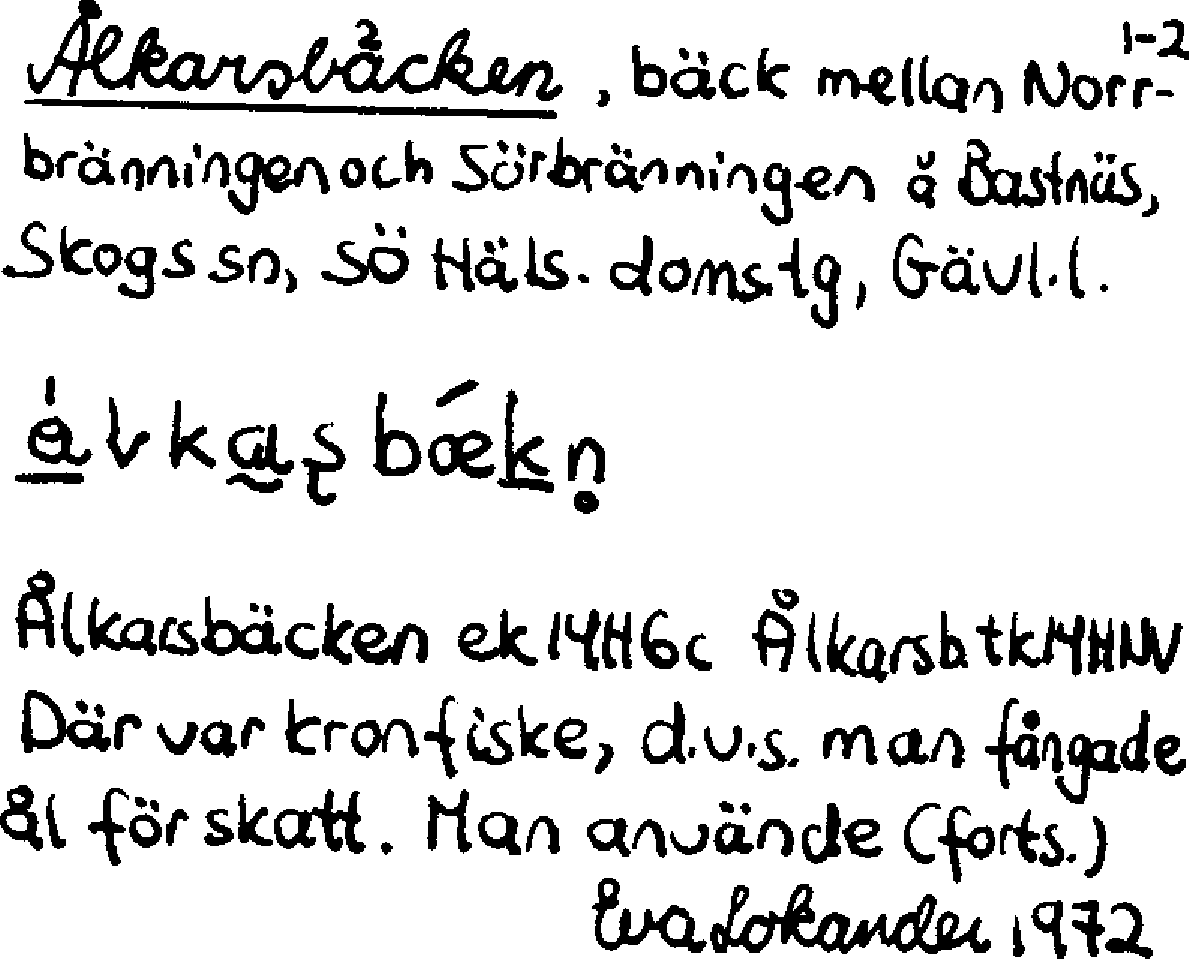 Ålkarsbäcken, bäck mellan Norr-
1-2
bränningen och Sörbränningen å Bastnäs,
Skogs sn, Sö Häls. doms.tg, Gävl.l.
Ålkarsbäcken ek 14H6c Ålkarsb. tk 14HNV
Där var kronfiske, d.v.s. man fångade
ål för skatt. Man använde (forts.)
Eva Lokander 1972